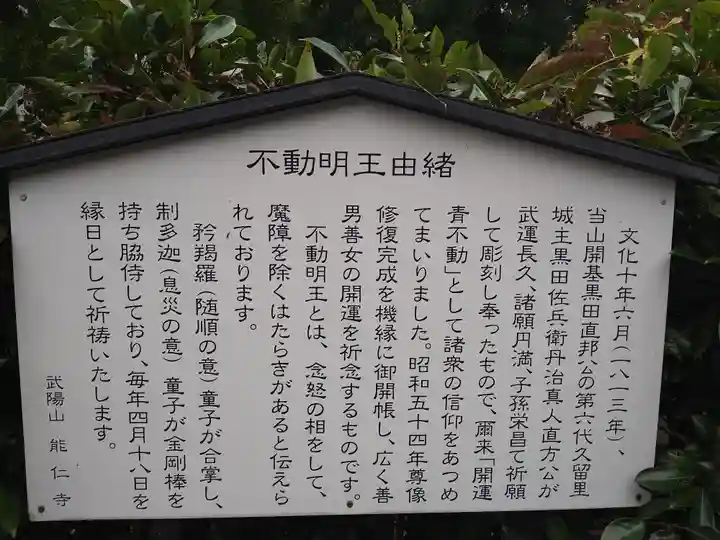 不動明王由緒
文化十年六月(一八一三年)、
当山開基黒田直邦公の第六代久留里
城主黒田佐兵衛丹治真人直方公が
武運長久、諸願円満、子孫栄昌て祈願
して彫刻し奉ったもので、爾来「開運
青不動」として諸衆の信仰をあつめ
てまいりました。昭和五十四年尊像
修復完成を機縁に御開帳し、広く善
男善女の開運を祈念するものです。
不動明王とは、忿怒の相をして、
魔障を除くはたらきがあると伝えら
れております。
矜羯羅(随順の意)童子が合掌し、
制多迦(息災の意)童子が金剛棒を
持ち脇侍しており、毎年四月十八日を
縁日として祈祷いたします。
武陽山 能仁寺